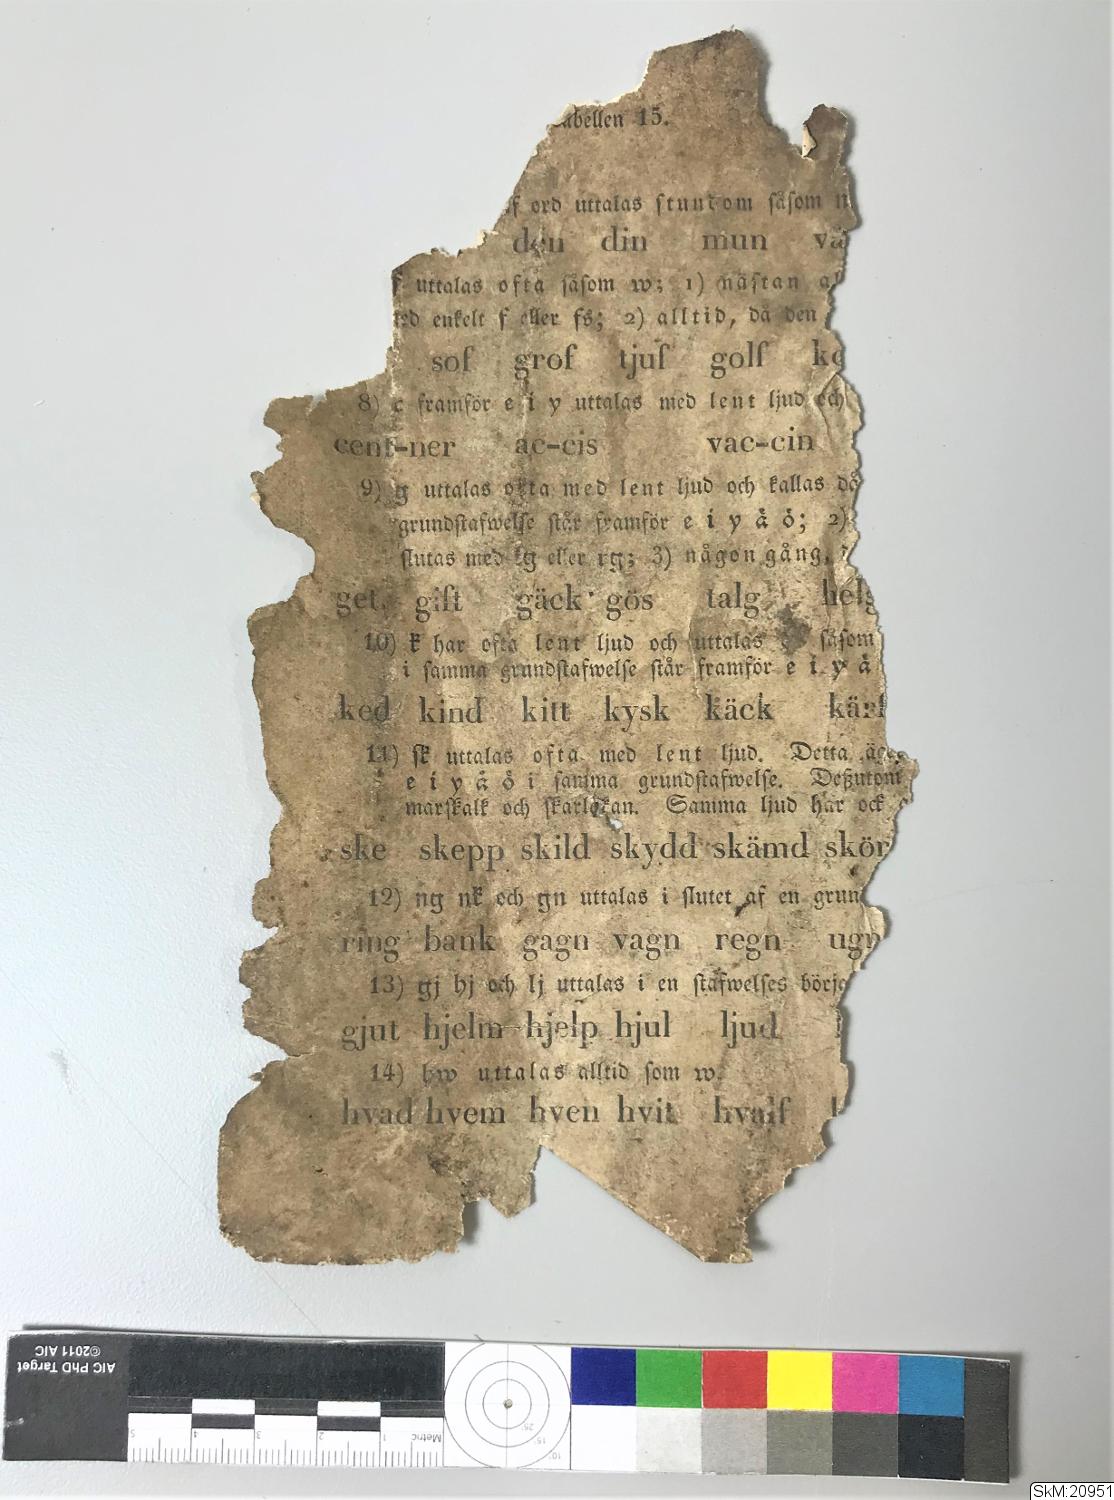 tabellen 15.
af ord uttalas stundom såsom
den din mun
f uttalas ofta såsom w; 1) nästan
med enkelt f eller fs; 2) alltid, då den
sof grof tjuf golf
8) c framför e i y uttalas med lent ljud och
cent-ner ac-cis vac-cin
9) g uttalas ofta med lent ljud och kallas då
grundstafwelse står framför e i y ä ö; 2)
slutas med lg eller rg; 3) någon gång,
get gift gäck gös talg helg
10) k har ofta lent ljud och uttalas såsom
i samma grundstafwelse står framför e i y ä
ked kind kitt kysk käck
11) sk uttalas ofta med lent ljud. Detta
e i y ä ö i samma grundstafwelse. Deßutom
marskalk och skarlakan. Samma ljud har ock
ske skepp skild skydd skämd skör
12) ng nk och gn uttalas i slutet af en grun
ring bank gagn vagn regn ugn
13) gj hj och lj uttalas i en stafwelses börj
gjut hjelm hjelp hjul ljud
14) hw uttalas alltid som w.
hvad hvem hven hvit hvalf
AIC PhD Target
©2011 AIC
5 4 3 2 1 Metric
SkM:20951